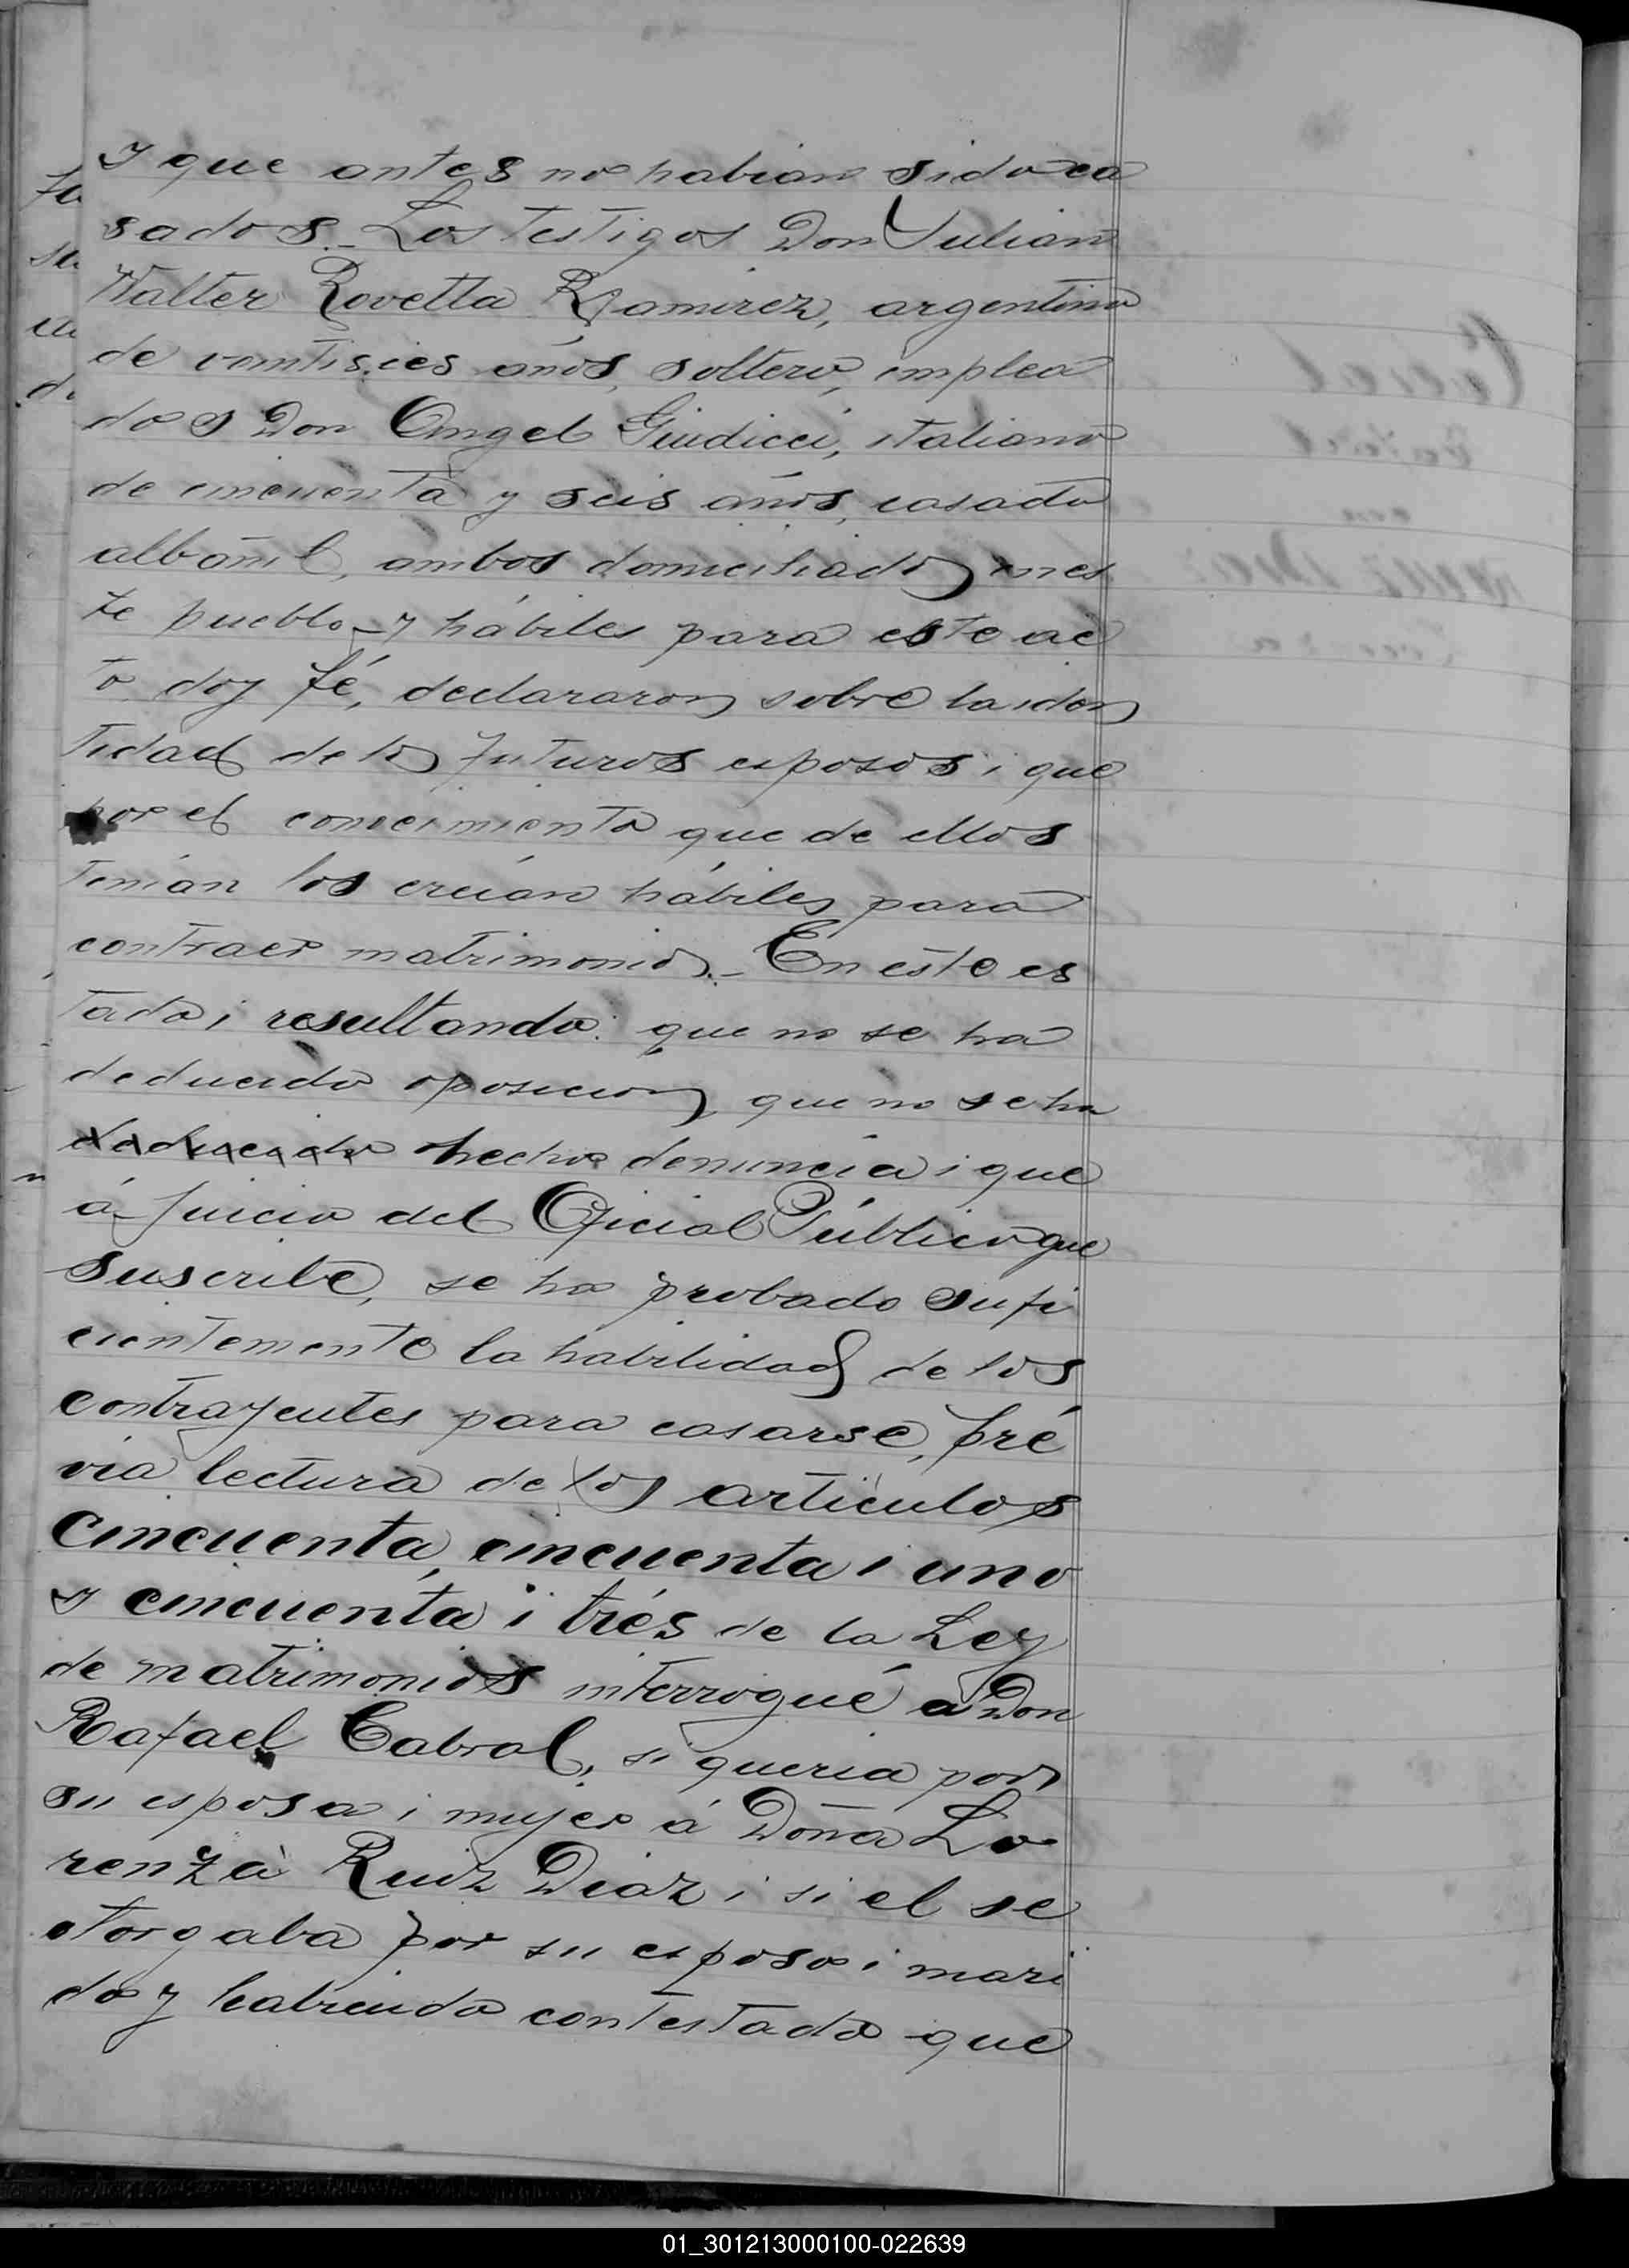 y que antes no habian sido ca
sados.- Los testigos Don Julian
Walter Rovetta Ramirez, argentino
de veintiseis años, soltero, emplea
do y Don Angel Giudicci, italiano
de cincuenta y seis años, casado
albañil, ambos domiciliados en es
te pueblo y hábiles para este ac
to doy fé, declararon sobre la iden
tidad de los futuros esposos i que
por el conocimiento que de ellos
tenían los creían hábiles para
contraer matrimonio.- En este es
tado i resultando: que no se ha
deducido oposicion, que no se ha
deducido hecho denuncia i que
á juicio del Oficial Público que
suscribe, se ha probado sufi
cientemente la habilidad de los
contrayentes para casarse, pré
via lectura de los articulos
cincuenta, cincuenta i uno
y cincuenta i trés de la Ley
de matrimonios interrogué a Don
Rafael Cabral, si queria por
su esposa i mujer á Doña Lo
renza Ruiz Diaz i si el se
otorgaba por su esposo i mari
do y habiendo contestado que
01_301213000100-022639